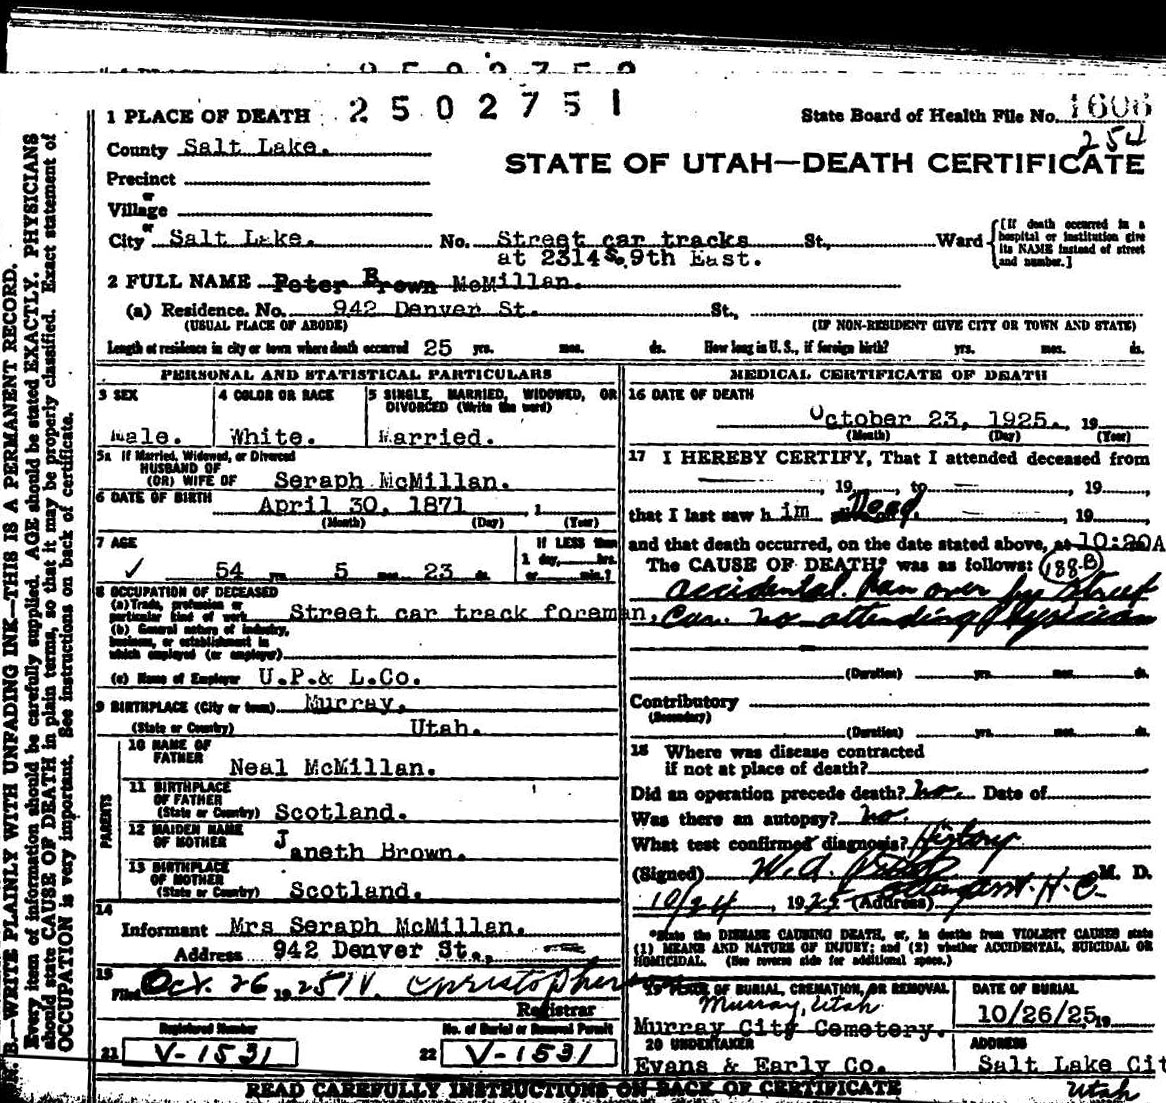 2502752
1 PLACE OF DEATH 2502751
State Board of Health File No. 1606
254
County Salt Lake.
STATE OF UTAH—DEATH CERTIFICATE
Precinct
or
Village
or
City Salt Lake. No. Street car tracks St., Ward
at 2314 S. 9th East.
[If death occurred in a hospital or institution give its NAME instead of street and number.]
2 FULL NAME Peter Brown McMillan.
(a) Residence. No. 942 Denver St. St.,
(USUAL PLACE OF ABODE) (IF NON-RESIDENT GIVE CITY OR TOWN AND STATE)
Length of residence in city or town where death occurred 25 yrs. mos. ds. How long in U. S., if foreign birth? yrs. mos. ds.
PERSONAL AND STATISTICAL PARTICULARS
3 SEX
Male.
4 COLOR OR RACE
White.
5 SINGLE, MARRIED, WIDOWED, OR
DIVORCED (Write the word)
Married.
5a If Married, Widowed, or Divorced
HUSBAND OF
(OR) WIFE OF Seraph McMillan.
6 DATE OF BIRTH April 30, 1871 , 1
(Month) (Day) (Year)
7 AGE
✓ 54 yrs 5 mos. 23 ds.
If LESS than
1 day, hrs.
or min.?
8 OCCUPATION OF DECEASED
(a) Trade, profession or
particular kind of work Street car track foreman,
(b) General nature of industry,
business, or establishment in
which employed (or employer)
(c) Name of Employer U.P.& L.Co.
9 BIRTHPLACE (City or town) Murray,
(State or Country) Utah.
PARENTS
10 NAME OF
FATHER Neal McMillan.
11 BIRTHPLACE
OF FATHER
(State or Country) Scotland.
12 MAIDEN NAME
OF MOTHER Janeth Brown.
13 BIRTHPLACE
OF MOTHER
(State or Country) Scotland.
14
Informant Mrs Seraph McMillan.
Address 942 Denver St.,
15
Filed Oct. 26 1925
Registrar
Registered Number
21 V-1531
No. of Burial or Removal Permit
22 V-1531
MEDICAL CERTIFICATE OF DEATH
16 DATE OF DEATH
October 23, 1925. 19
(Month) (Day) (Year)
17 I HEREBY CERTIFY, That I attended deceased from
, 19 , to , 19 ,
that I last saw h im Dead. , 19 ,
and that death occurred, on the date stated above, at 10:20A
The CAUSE OF DEATH* was as follows: 188B
accidental. Ran over by Street
Car. No attending Physician
(Duration) yrs. mos. ds.
Contributory
(Secondary)
(Duration) yrs. mos. ds.
18 Where was disease contracted
if not at place of death?
Did an operation precede death? No. Date of
Was there an autopsy? No.
What test confirmed diagnosis? History
(Signed) W. A. M. D.
10/24, 1925 (Address) H. C.
*State the DISEASE CAUSING DEATH, or, in deaths from VIOLENT CAUSES state
(1) MEANS AND NATURE OF INJURY; and (2) whether ACCIDENTAL, SUICIDAL OR
HOMICIDAL. (See reverse side for additional space.)
19 PLACE OF BURIAL, CREMATION, OR REMOVAL
Murray, Utah
Murray City Cemetery.
DATE OF BURIAL
10/26/25, 19
20 UNDERTAKER
Evans & Early Co.
ADDRESS
Salt Lake Cit
Utah
READ CAREFULLY INSTRUCTIONS ON BACK OF CERTIFICATE
B.—WRITE PLAINLY WITH UNFADING INK—THIS IS A PERMANENT RECORD.
Every item of information should be carefully supplied. AGE should be stated EXACTLY. PHYSICIANS
should state CAUSE OF DEATH in plain terms, so that it may be properly classified. Exact statement of
OCCUPATION is very important. See instructions on back of certificate.